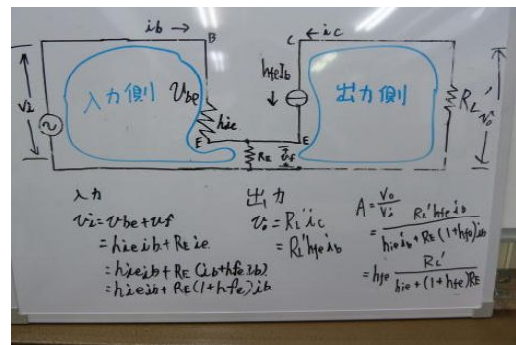 ib → B
C ← ic
hfeIb ↓
vi
入力側
vbe
hie
E
E
RE
vf
出力側
RL'
vo
入力
vi = vbe + vf
= hie ib + RE ie
= hie ib + RE (ib + hfe ib)
= hie ib + RE (1 + hfe) ib
出力
vo = RL' ic
= RL' hfe ib
A = Vo / Vi
= RL' hfe ib / hie ib + RE (1 + hfe) ib
= hfe RL' / hie + (1 + hfe) RE